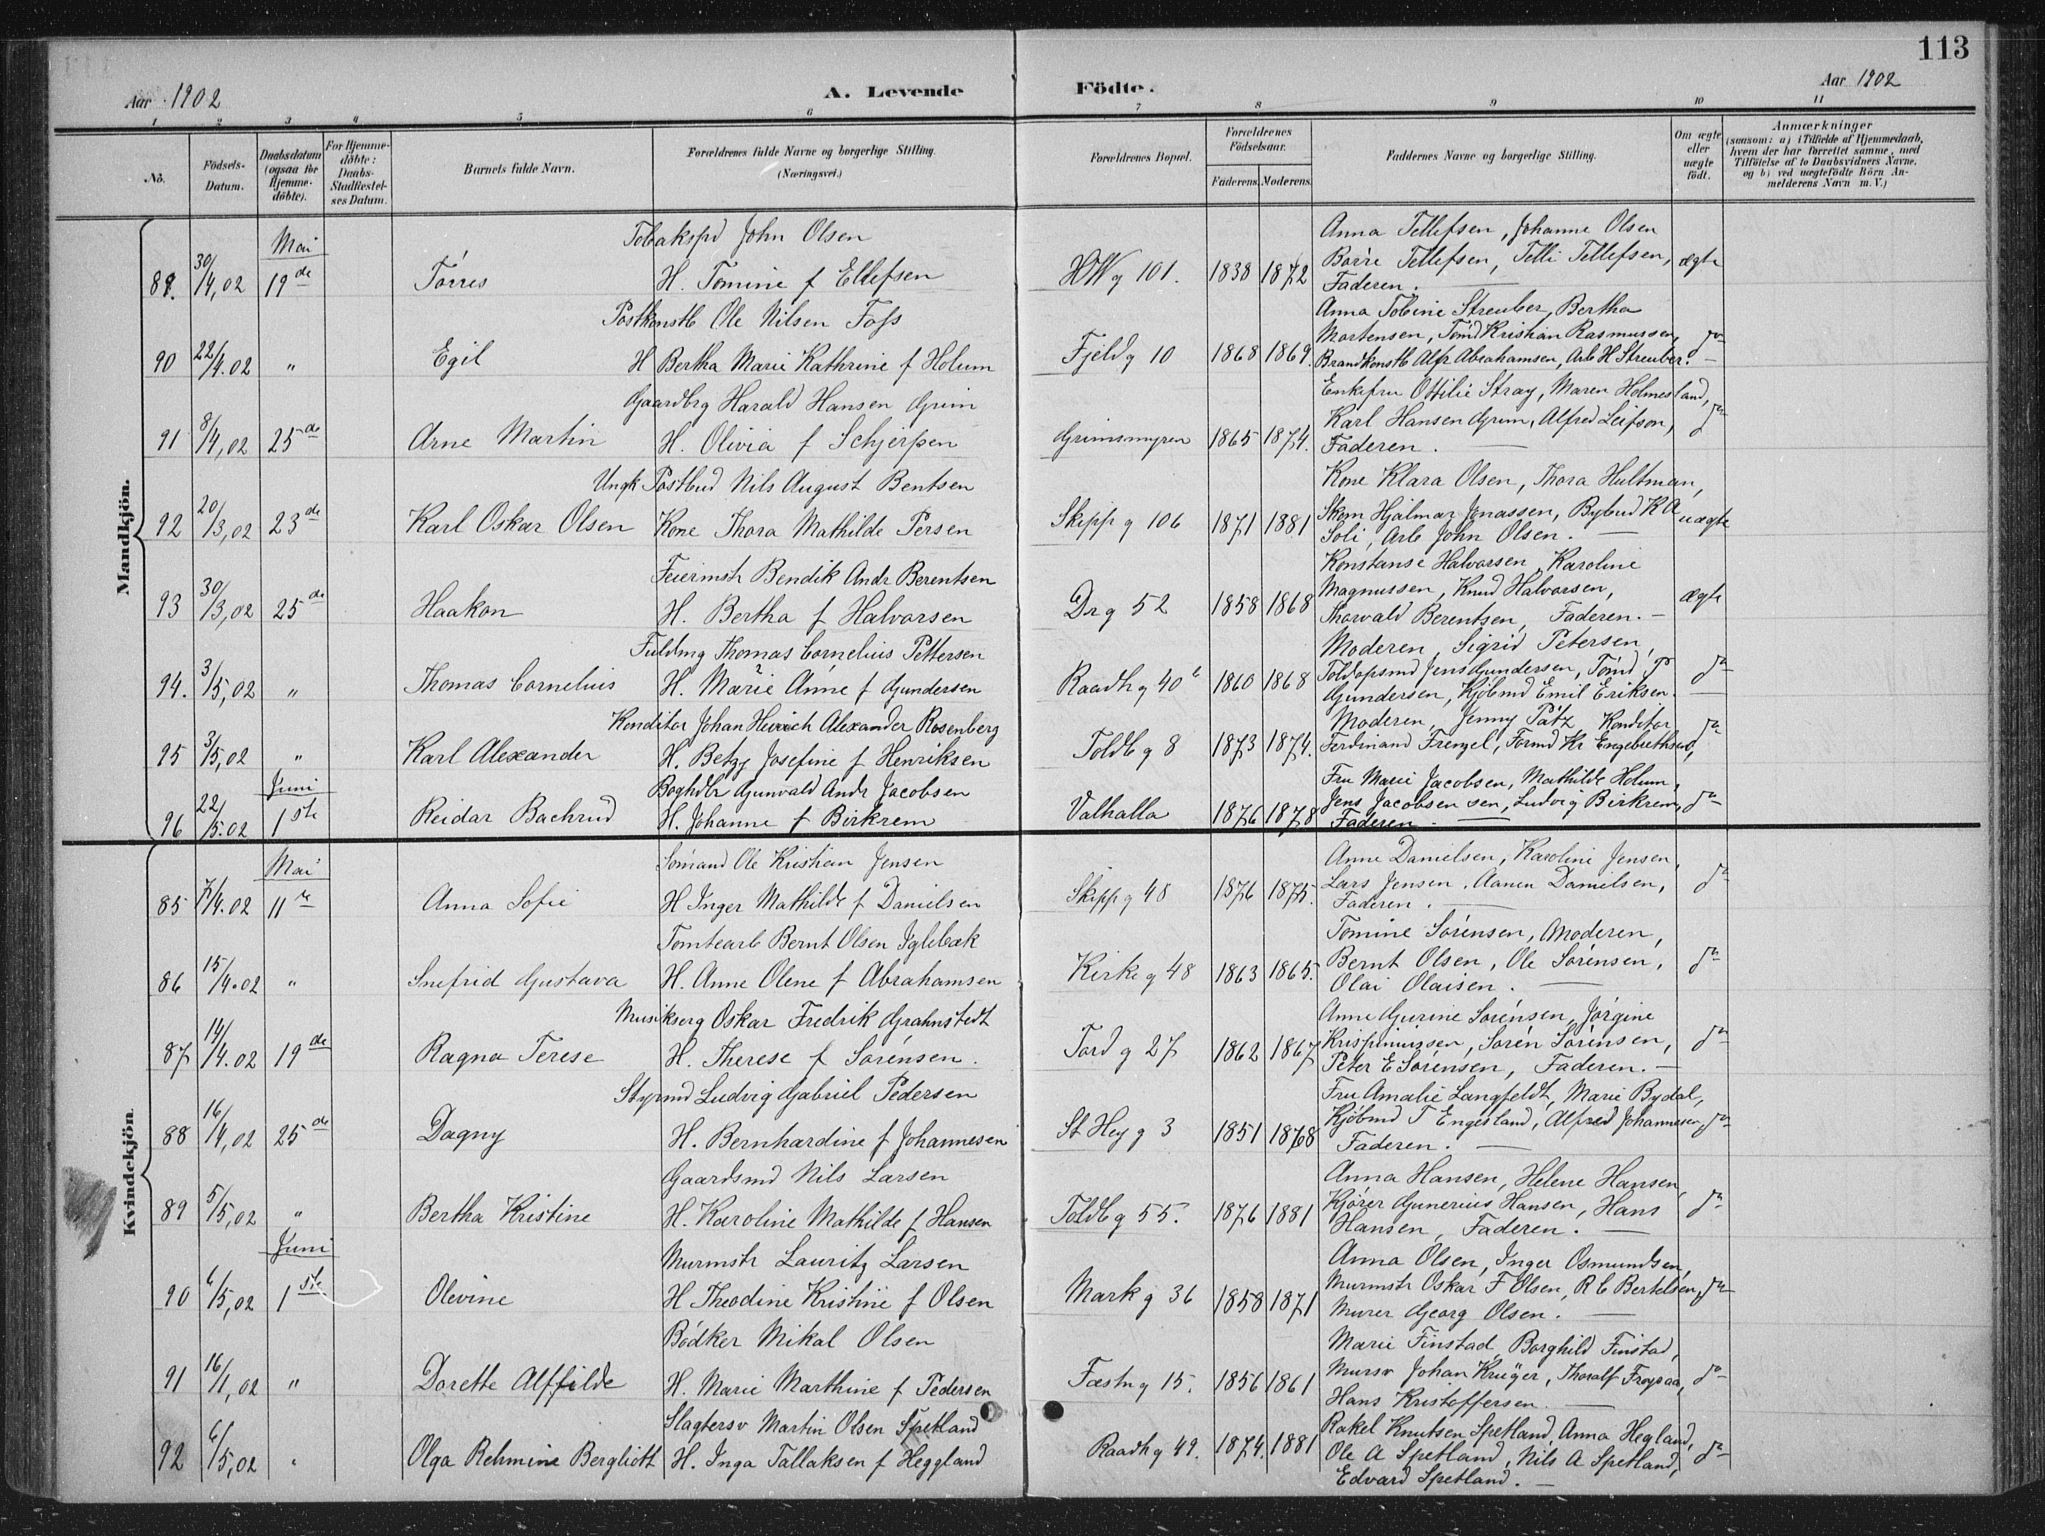 113
Aar 1902
A. Levende
Födte.
Aar 1902
1 2 3 4 5 6 7 8 9 10 11
No.
Födsels-Datum.
Daabsdatum (ogsaa for Hjemme-döbte).
For Hjemme-döbte: Daabs-Stadfæstel-ses Datum.
Barnets fulde Navn.
Forældrenes fulde Navne og borgerlige Stilling. (Næringsvei.)
Forældrenes Bopæl.
Forældrenes Födselsaar.
Faderens. Moderens.
Faddernes Navne og borgerlige Stilling.
Om ægte eller uægte födt.
Anmærkninger
(saasom: a) i Tilfælde af Hjemmedaab,
hvem der har forrettet samme, med
Tilföielse af to Daabsvidners Navne,
og b) ved uægtefödte Börn An-
melderens Navn m. V.)
Mandkjön.
Tobakspd John Olsen
Anna Tellefsen, Johanne Olsen
Mai
89. 30/4,02 19de Tórres H. Tomine f Ellefsen HWg 101. 1838 1872 Börre Tellefsen, Telli Tellefsen, ægte
Faderen.
Postkonstb Ole Nilsen Foss
Anna Tobine Streuber, Bertha
Mortensen, Tómd Kristian Rasmussen,
90 22/4.02 " Egil H Bertha Marie Kathrine f Holum Fjeldg 10 1868 1869. Brandkonstb Alfr Abrahamsen, Arb H Streuber. do
Gaardbrg Harald Hansen Grim
Enkefru Ottilie Stray, Maren Holmesland,
Karl Hansen Grim, Alfred Leifson,
91 8/4,02 25de Arne Martin H. Olivia f Schjerpen Grimsmyren 1865 1874. Faderen. do
Ungk Postbud Nils August Bentsen
Kone Klara Olsen, Thora Hultman,
92 20/3,02 23de Karl Oskar Olsen Kone Thora Mathilde Persen Skippg 106 1871 1881 Skom Hjalmar Jonassen, Bybud K A uægte
Soli, Arb John Olsen.
Feiermstr Bendik Andr Berentsen
Konstanse Halvorsen, Karoline
93 30/3,02 25de Haakon H. Bertha f Halvorsen Drg 52 1858 1868 Magnussen, Knud Halvorsen, ægte
Thorvald Berentsen, Faderen.
Fuldmg Thomas Cornelius Pettersen
Moderen, Sigrid Petersen,
94. 3/5,02 " Thomas Cornelius H. Marie Anne f Gundersen Raadhg 40 b 1860 1868 Toldopsmd Jens Gundersen, Tómd P do
Gundersen, Kjöbmd Emil Eriksen.
Konditor Johan Hinrich Alexander Rosenberg
Moderen, Jenny Pätz, Konditor
95 3/5,02 " Karl Alexander H. Betzy Josefine f Henriksen Toldbg 8 1873 1874. Ferdinand Frenzel, Formd Kr Engebrethsen, do
Juni
Boghdlr Gunvald Andr Jacobsen
Fru Marie Jacobsen, Mathilde Holum,
96 22/5.02 1ste Reidar Bachrud H. Johanne f Birkrem Valhalla 1876 1878 Jens Jacobsen sen, Ludvig Birkrem, do
Faderen.
Kvindekjön
Mai
Sömand Ole Kristian Jensen
Anne Danielsen, Karoline Jensen,
85 7/4.02 11te Anna Sofie H Inger Mathilde f Danielsen Skippg 48 1876 1875. Lars Jensen, Aanen Danielsen, do
Faderen.
Tomtearb Bernt Olsen Iglebæk
Tomine Sórensen, Moderen,
86 15/4.02 " Snefrid Gustava H. Anne Olene f Abrahamsen Kirkeg 48 1863 1865. Bernt Olsen, Ole Sórensen, do
Olai Olaisen.
Musikserg Oskar Fredrik Grahnstedt
Anne Gurine Sórensen, Jórgine
87 14/4.02 19de Ragna Terese H. Therese f Sórensen. Tordg 27 1862 1867 Sóren Sórensen, do
Peter E Sórensen, Faderen.
Styrmd Ludvig Gabriel Pedersen
Fru Amalie Langfeldt, Marie Bydal,
88 16/4,02 25de Dagny H. Bernhardine f Johannesen St Heyg 3 1851 1868 Kjöbmd T Engesland, Alfred Johannesen, do
Faderen.
Gaardsmd Nils Larsen
Anna Hansen, Helene Hansen,
89 5/5,02 " Bertha Kristine H. Karoline Mathilde f Hansen Toldbg 55. 1876 1881 Kjórer Gunerius Hansen, Hans do
Hansen, Faderen.
Juni
Murmstr Lauritz Larsen
Anna Olsen, Inger Osmundsen,
90 6/5,02 1ste Olevine H Theodine Kristine f Olsen Markg 36 1858 1871 Murmstr Oskar F Olsen, R C Bertelsen, do
Murer Georg Olsen.
Bödker Mikal Olsen
Marie Finstad, Borghild Finstad,
91 16/1,02 " Dorette Alffilde H. Marie Marthine f Pedersen Fæstng 15. 1856 1861 Mursv Johan Krüger, Thoralf Frøysaa, do
Hans Kristoffersen.
Slagtersv Martin Olsen Spetland
Rakel Knutsen Spetland, Anna Hegland,
92 6/5,02 " Olga Rehmine Bergliott H. Inga Tallaksen f Heggland Raadhg 49. 1874. 1881 Ole A Spetland, Nils A Spetland, do
Edvard Spetland.